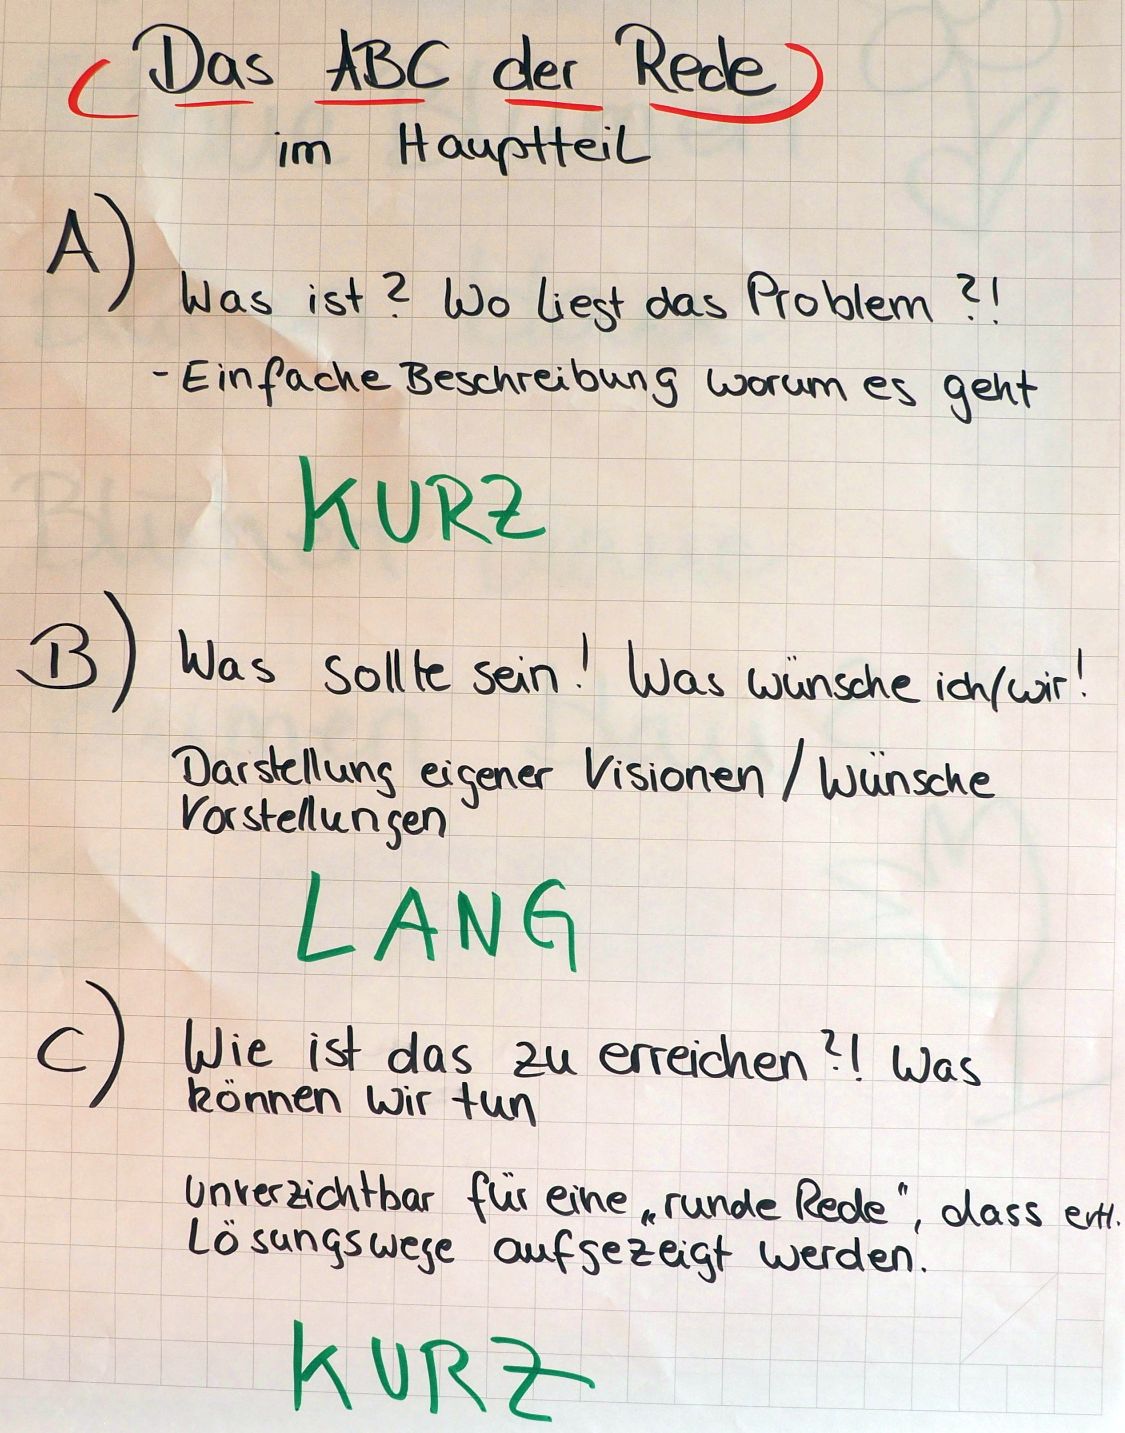 Das ABC der Rede
im Hauptteil
A)
Was ist? Wo liegt das Problem?!
- Einfache Beschreibung worum es geht
KURZ
B) Was sollte sein! Was wünsche ich/wir!
Darstellung eigener Visionen / Wünsche
Vorstellungen
LANG
C) Wie ist das zu erreichen?! Was
können wir tun
unverzichtbar für eine „runde Rede", dass evtl.
Lösungswege aufgezeigt werden.
KURZ